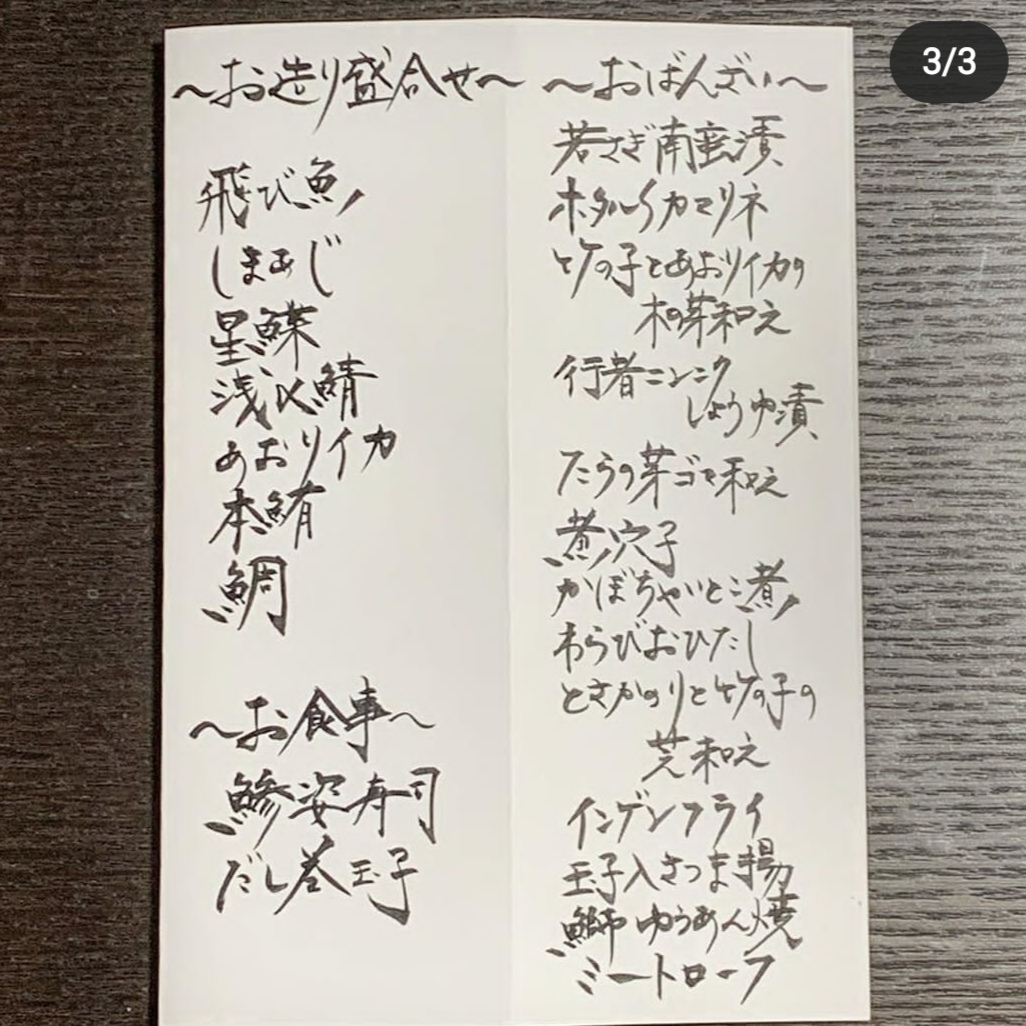 3/3
～お造り盛合せ～
飛び魚
しまあじ
星鰈
浅〆鯖
あおりイカ
本鮪
鯛
～お食事～
鯵姿寿司
だし巻玉子
～おばんざい～
若さぎ南蛮漬
ホタルイカマリネ
竹の子とあおりイカの
木の芽和え
行者ニンニク
しょうゆ漬
たらの芽ゴマ和え
煮穴子
かぼちゃいとこ煮
わらびおひたし
とさかのりと竹の子の
和え
インゲンフライ
玉子入さつま揚
鰤ゆうあん焼
ミートローフ